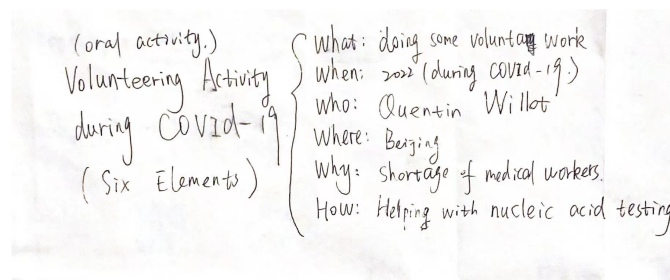 (oral activity.)
Volunteering Activity
during COVID-19
(Six Elements)
What: doing some voluntary work
When: 2022 (during COVID-19.)
Who: Quentin Willot
Where: Beijing
Why: Shortage of medical workers.
How: Helping with nucleic acid testing